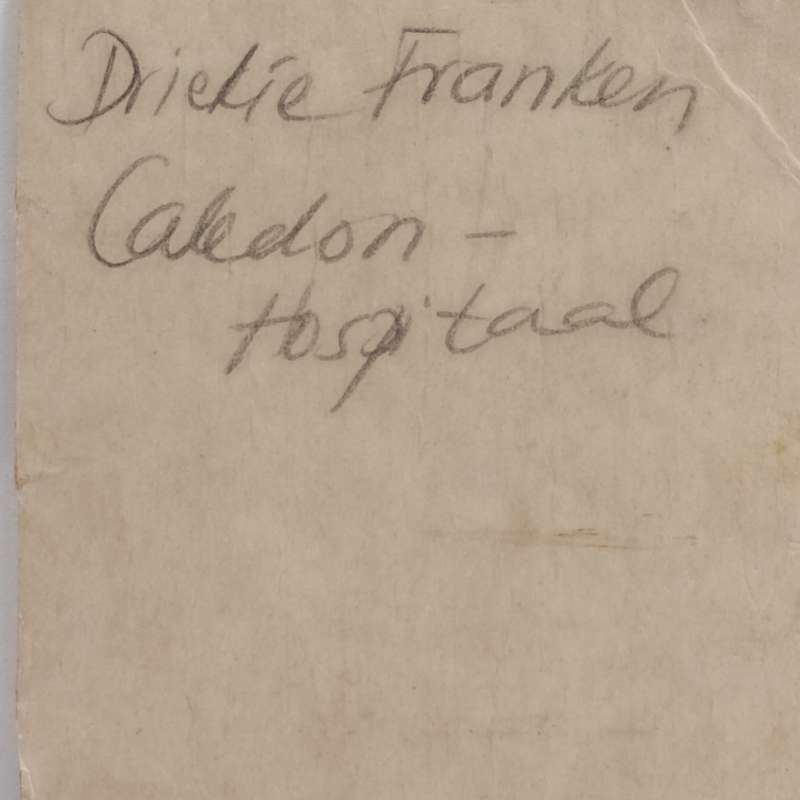 Driekie Franken
Caledon -
Hospitaal